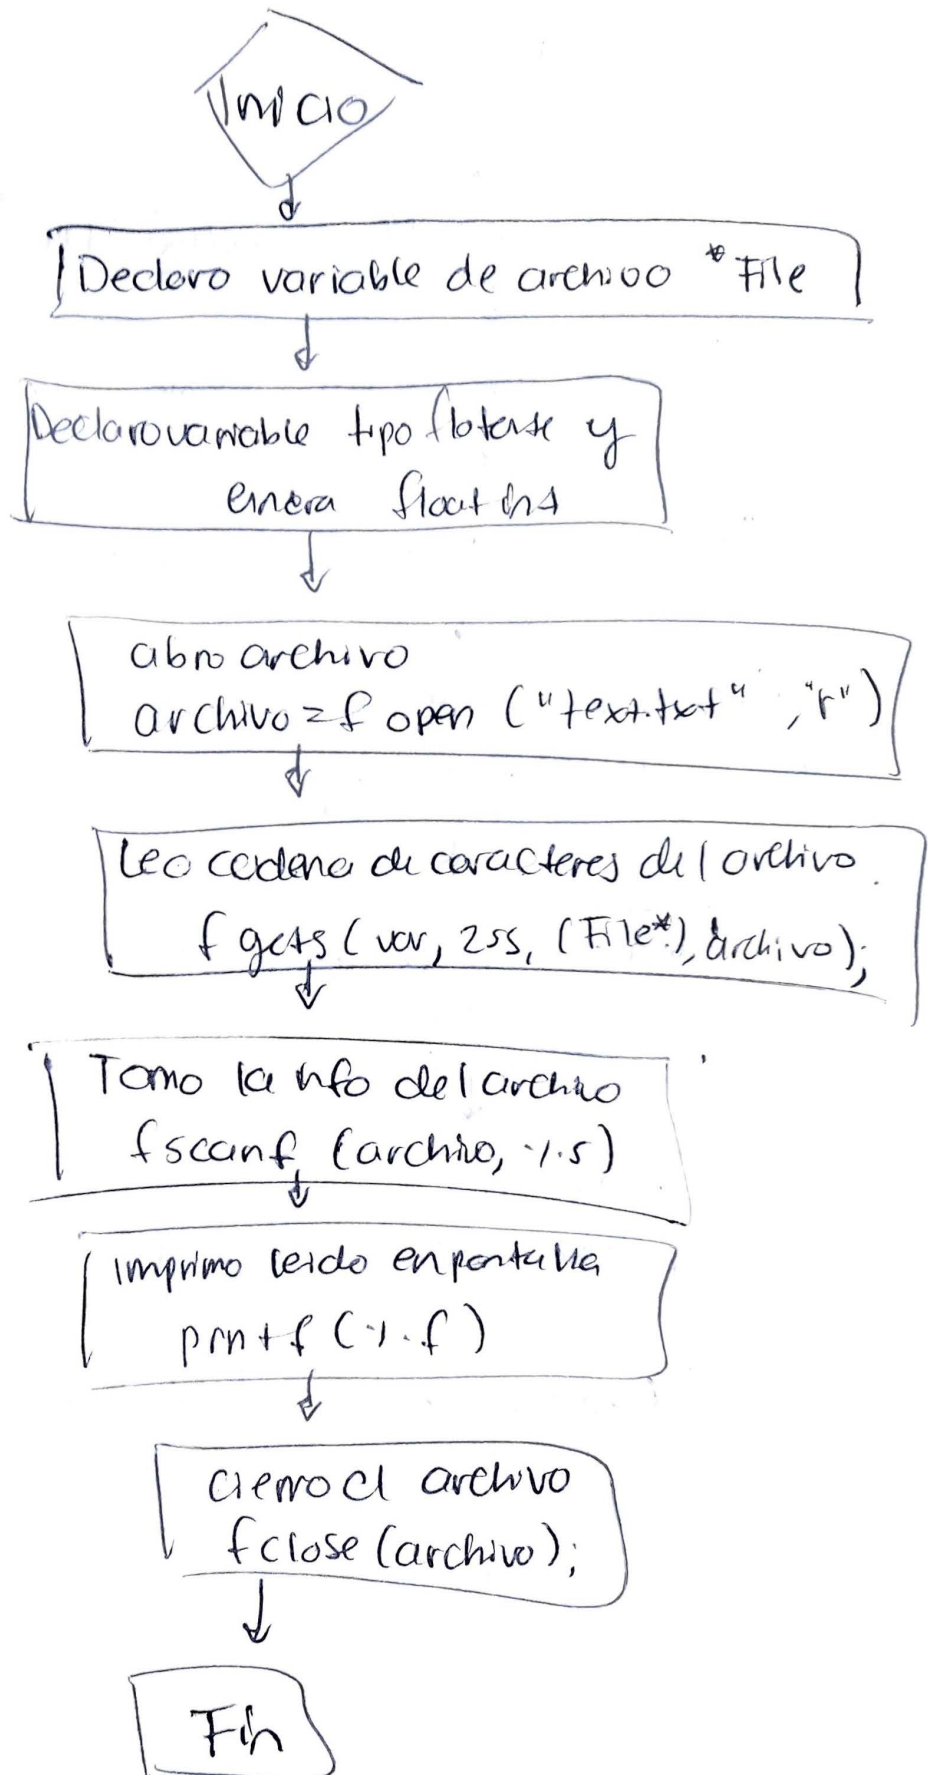 Inicio
Declaro variable de archivo *File
Declaro variable tipo flotante y
entera float int
abro archivo
archivo = f open ("text.txt" , "r")
Leo cadena de caracteres del archivo.
f gets (var, 255, (File*), archivo);
Tomo la info del archivo
fscanf (archivo, %s)
Imprimo leido en pantalla
printf (%.f)
cierro el archivo
fclose (archivo);
Fin